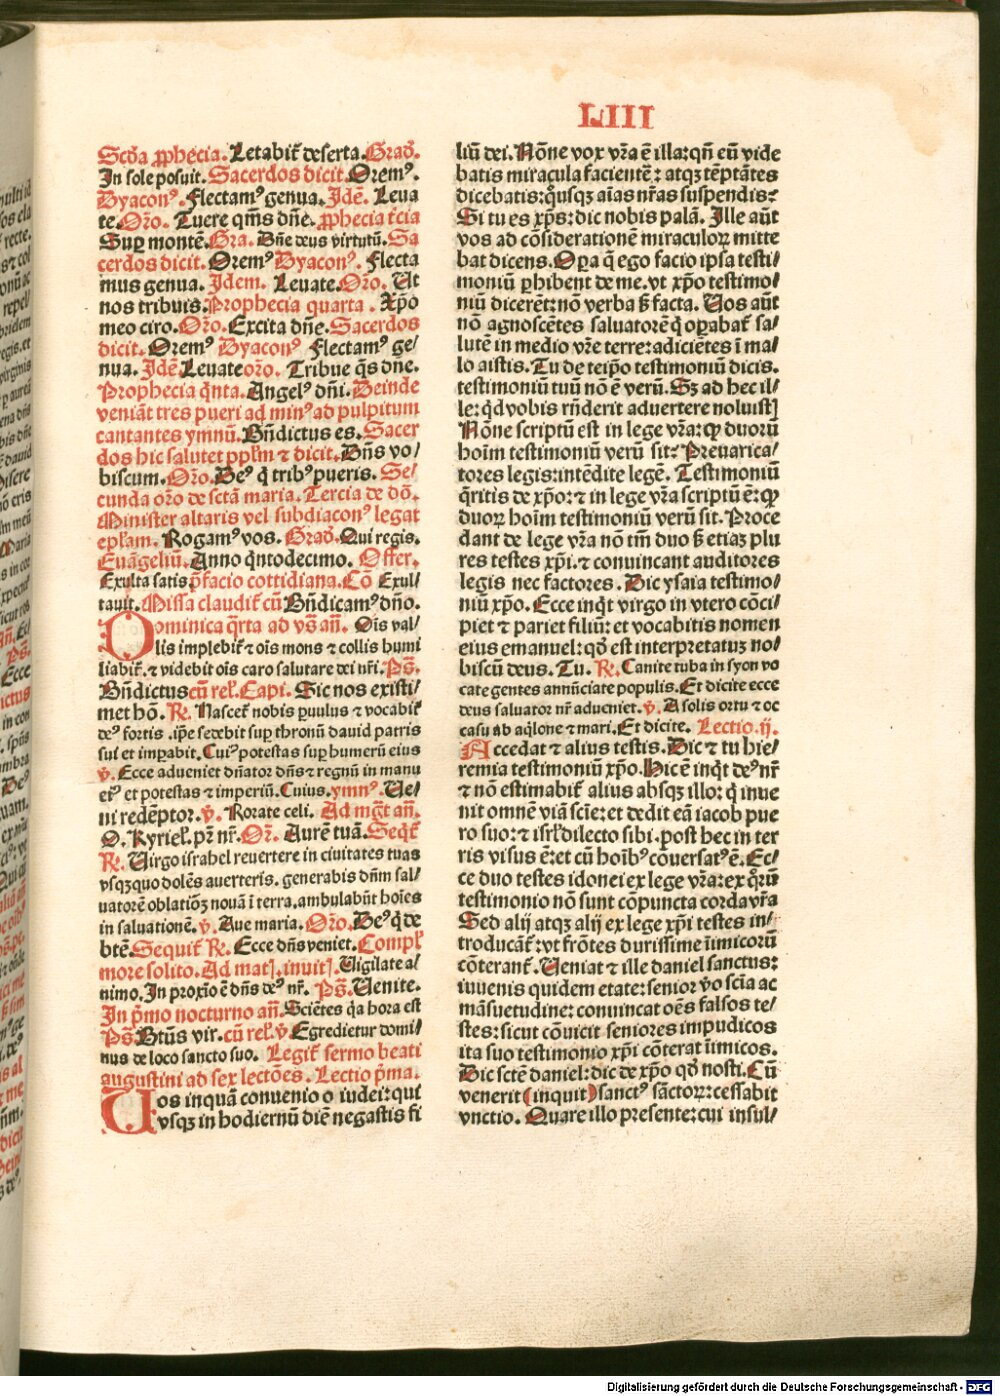 LIII
Scḋa ꝓphecia. Letabit̄ deserta. Grad̄.
In sole posuit. Sacerdos dicit. Oremꝰ.
Dyaconꝰ. Flectamꝰ genua. Idē. Leua
te. Or̄o. Tuere qm̄s dn̄e. ꝓphecia t̄cia
Suꝑ montē. Gra. Dn̄e deus virtutū. Sa
cerdos dicit. Oremꝰ Dyaconꝰ. Flecta
mus genua. Idem. Leuate. Or̄o. Ut
nos tribuis. Prophecia quarta. Xp̄o
meo ciro. Or̄o. Excita dn̄e. Sacerdos
dicit. Oremꝰ Dyaconꝰ Flectamꝰ ge/
nua. Idē Leuate or̄o. Tribue q̄s dn̄e.
Prophecia qn̄ta. Angelꝰ dn̄i. Deinde
veniāt tres pueri ad minꝰ ad pulpitum
cantantes ymnū. Bn̄dictus es. Sacer
dos hic salutet ppl̄m ⁊ dicit. Dn̄s vo/
biscum. Or̄o. Deꝰ q̄ tribꝰ pueris. Se/
cunda or̄o de sctā maria. Tercia de dō.
Minister altaris vel subdiaconꝰ legat
epl̄am. Rogamꝰ vos. Grad̄. Qui regis.
Euāgeliū. Anno qn̄todecimo. Offer.
Exulta satis p̄facio cottidiana. Cō Exul/
tauit. Missa claudit̄ cū Bn̄dicamꝰ dn̄o.
Dominica q̄rta ad vs̄ an̄. Ois val/
lis implebit̄ ⁊ oīs mons ⁊ collis humi
liabit̄. ⁊ videbit oīs caro salutare dei nr̄i. Ps̄.
Bn̄dictus cū rel̄. Capi. Sic nos existi/
met hō. R̄. Nascet̄ nobis ꝑuulus ⁊ vocabit̄
deꝰ fortis. ip̄e sedebit suꝑ thronū dauid patris
sui et imꝑabit. Cuiꝰ potestas suꝑ humerū eius
v̄. Ecce adueniet dn̄ator dn̄s ⁊ regnū in manu
eiꝰ et potestas ⁊ imperiū. Cuius. ymnꝰ. Ue/
ni redēptor. v̄. Rorate celi. Ad mgt̄ an̄.
O. Kyriel̄. pr̄ nr̄. Or̄. Aurē tuā. Seqt̄
R̄. Uirgo israhel reuertere in ciuitates tuas
vsqꝫquo dolēs auerteris. generabis dn̄m sal/
uatorē oblatiōꝫ nouā ī terra. ambulabūt hoīes
in saluationē. v̄. Aue maria. Or̄o. Deꝰ q̄ de
btē. Sequit̄ R̄. Ecce dn̄s veniet. Compl̄
more solito. Ad mat. inuit. Uigilate a/
nimo. In proxīo ē dn̄s deꝰ nr̄. Ps̄. Uenite.
In p̄mo nocturno an̄. Sciētes q̄a hora est
Ps̄. Btūs vir. cū rel̄. v̄ Egredietur domi/
nus de loco sancto suo. Legit̄ sermo beati
augustini ad sex lectōes. Lectio p̄ma.
Uos inquā conuenio o iudei: qui
vsqꝫ in hodiernū diē negastis fi
liū dei. Nōne vox vr̄a ē illa: qn̄ eū vide
batis miracula facientē: atqꝫ tēptātes
dicebatis: qͦusqꝫ aīas nr̄as suspendis:
Si tu es xp̄s: dic nobis palā. Ille aūt
vos ad cōsiderationē miraculoꝝ mitte
bat dicens. Oꝑa q̄ ego facio ipsa testi/
moniū ꝑhibent de me. vt xp̄o testimo/
niū dicerēt: nō verba s̄ facta. Uos aūt
nō agnoscētes saluatorē q̄ oꝑabat̄ sa/
lutē in medio vr̄e terre: adiciētes ī ma/
lo aistis. Tu de teip̄o testimoniū dicis.
testimoniū tuū nō ē verū. Sꝫ ad hec il/
le: qd̄ vobis rn̄derit aduertere noluist
Nōne scriptū est in lege vr̄a: ꝙ duorū
hoīm testimoniū verū sit: Preuarica/
tores legis: intēdite legē. Testimoniū
q̄ritis de xp̄o: ⁊ in lege vr̄a scriptū ē: ꝙ
duoꝝ hoīm testimoniū verū sit. Proce
dant de lege vr̄a nō tm̄ duo s̄ etiaꝫ plu
res testes xp̄i. ⁊ conuincant auditores
legis nec factores. Dic ysaia testimo/
niū xp̄o. Ecce inqt̄ virgo in vtero cōci/
piet ⁊ pariet filiū: et vocabitis nomen
eius emanuel: qd̄ est interpretatuꝫ no/
biscū deus. Tu. R̄. Canite tuba in syon vo
cate gentes annūciate populis. Et dicite ecce
deus saluator nr̄ adueniet. v̄. A solis ortu ⁊ oc
casu ab aq̄lone ⁊ mari. Et dicite. Lectio .ij.
Accedat ⁊ alius testis. Dic ⁊ tu hie/
remia testimoniū xp̄o. Hic ē inqt̄ deꝰ nr̄
⁊ nō estimabit̄ alius absqꝫ illo: q̄ inue
nit omnē viā scīe: et dedit eā iacob pue
ro suo: ⁊ isrl̄ dilecto sibi. post hec in ter
ris visus ē: et cū hoībꝰ cōuersatꝰ ē. Ec/
ce duo testes idonei ex lege vr̄a: ex qͦrū
testimonio nō sunt cōpuncta corda vr̄a
Sed alij atqꝫ alij ex lege xp̄i testes in/
troducāt̄: vt frōtes durissime īimicorū
cōterant̄. Ueniat ⁊ ille daniel sanctus:
iuuenis quidem etate: senior vo scīa ac
māsuetudine: conuincat oēs falsos te/
stes: sicut cōuicit seniores impudicos
ita suo testimonio xp̄i cōterat īimicos.
Dic sctē daniel: dic de xp̄o qd̄ nosti. Cū
venerit (inquit) sanctꝰ sāctoꝝ: cessabit
vnctio. Quare illo presente: cui insul/
Digitalisierung gefördert durch die Deutsche Forschungsgemeinschaft - DFG